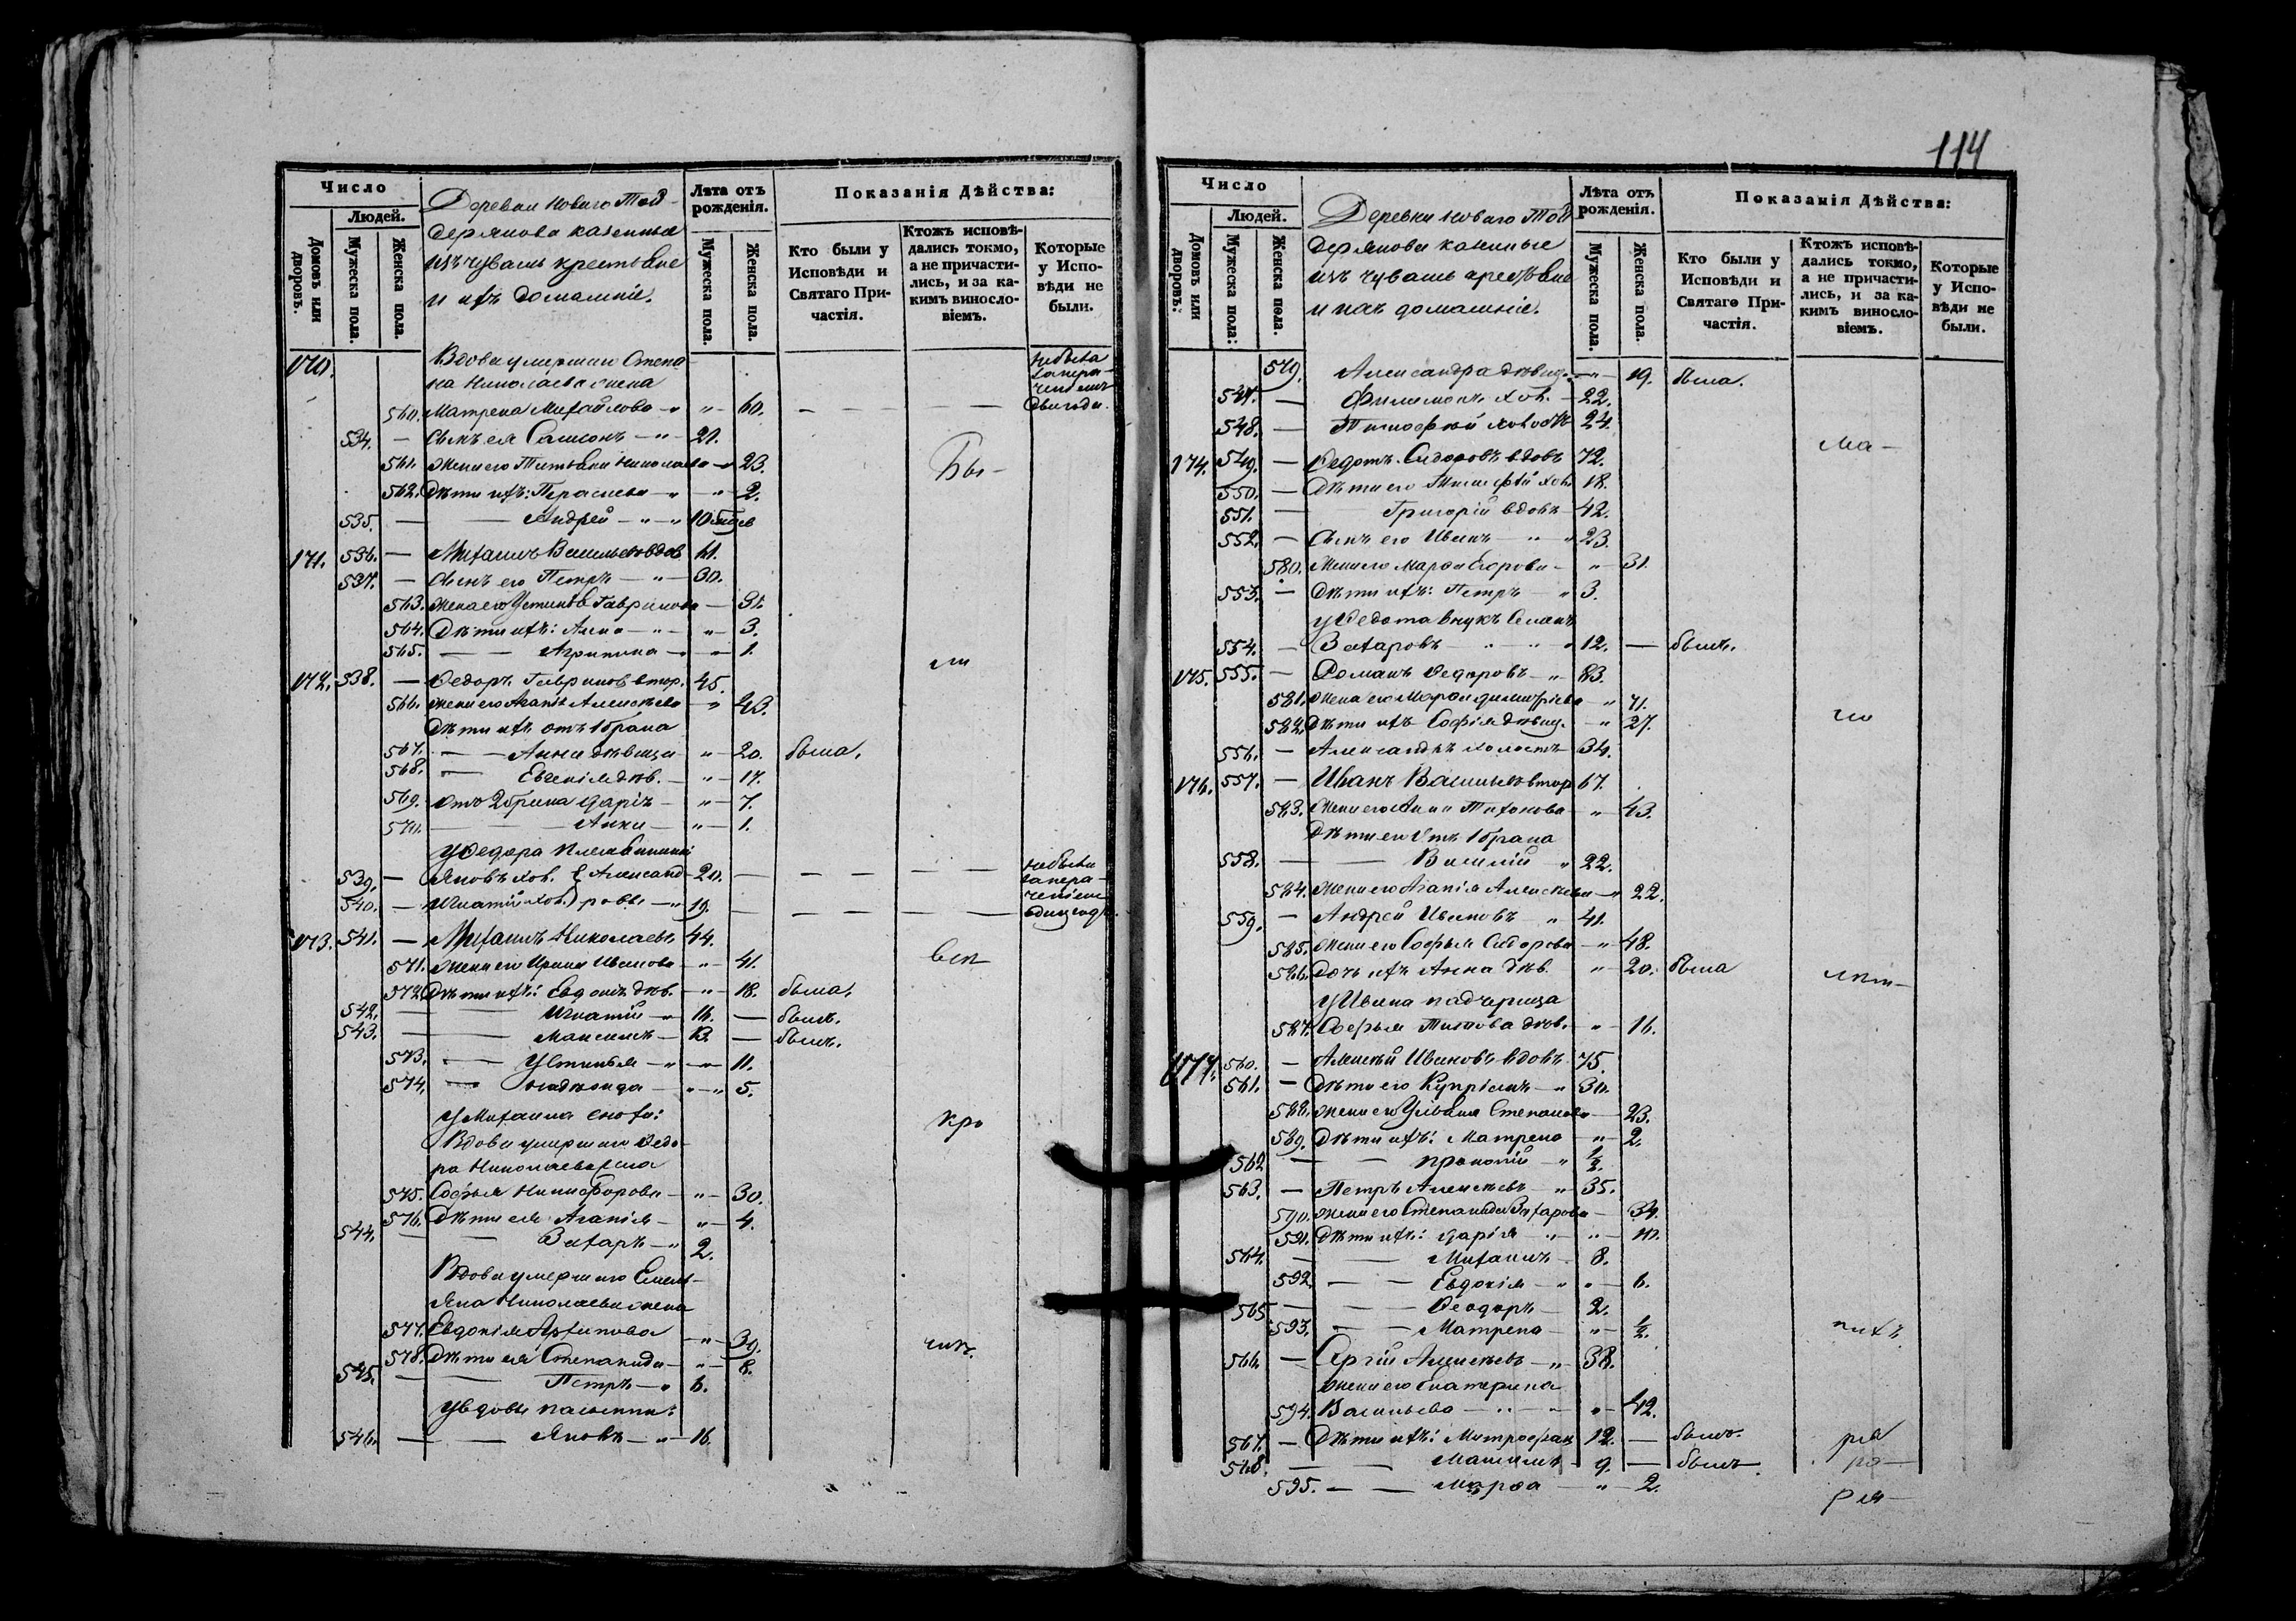 Число
Людей.
Домовъ или дворовъ.
Мужеска пола.
Женска пола.
Деревни Новаго Той-
дерякова казенные
изъ чувашъ крестьяне
и ихъ домашніе.
Лѣта отъ рожденія.
Мужеска пола.
Женска пола.
Показанія Дѣйства:
Кто были у Исповѣди и Святаго Причастія.
Ктожъ исповѣдались токмо, а не причастились, и за какимъ винословіемъ.
Которые у Исповѣди не были.
170. Вдова умершаго Степа-
на Николаева жена
560. Матрена Михайлова — " — 60. — — — —
534. — Сынъ ея Самсонъ — " — 21.
561. Жена его Татьяна Николаева — 23.
562. Дѣти ихъ: Параскева — " — 2.
535. — — Андрей — " — 10
Бы-
171. 536. — Михаилъ Васильевъ вдов 61.
537. — Сынъ его Петръ — " — 30.
563. Жена его Устинья Гаврилова — 31.
564. Дѣти ихъ: Анна — " — " — 3.
565. — — Агрипина — " — 1.
ли
172. 538. — Ѳедоръ Гавриловъ втор. 45.
566. Жена его Агапія Алексѣева — " — 43.
Дѣти ихъ отъ 1 брака
567. — — Анна дѣвица — " — 20. была.
568. — Евгенія дѣв. — " — 17.
569. Отъ 2 брака Дарія — " — 7.
570. — — Анна — " — 1.
У Ѳедора племянники
539. — Яковъ хол. Александ- 20. — — — — —
540. — Игнатій хол. ровы — " 19. — — — — —
173. 541. — Михаилъ Николаевъ 44.
571. Жена его Ирина Иванова — " — 41.
всп
572. Дѣти ихъ: Евдокія дѣв. — " — 18. была.
542. — — Игнатій — " — 16. — былъ.
543. — — Максимъ — 13. — былъ.
573. — Устинья — " — " — 11.
574. — Надежда — " — " 5.
У Михаила снохи:
Вдова умершаго Ѳедо-
ра Николаева жена
кро
575. Софья Никифорова — " — 30.
576. Дѣти ея Агапія — " — 4.
544. — — Захаръ — " 2.
Вдова умершаго Емель-
яна Николаева жена
577. Евдокія Архипова — " — 39.
578. Дѣти ея Степанида — " — 8.
545. — — Петръ — " 6.
У вдовы пасынки:
546. — — Яковъ — " — 16.
114
Число
Людей.
Домовъ или дворовъ.
Мужеска пола.
Женска пола.
Деревни Новаго Той-
дерякова казенные
изъ чувашъ крестьяне
и ихъ домашніе.
Лѣта отъ рожденія.
Мужеска пола.
Женска пола.
Показанія Дѣйства:
Кто были у Исповѣди и Святаго Причастія.
Ктожъ исповѣдались токмо, а не причастились, и за какимъ винословіемъ.
Которые у Исповѣди не были.
579. Александра дѣвиц. — " — 19. была.
547. — Филимонъ хол. — 22.
548. — Тимофей холостъ 24.
ма-
174. 549. — Ѳедотъ Сидоровъ вдовъ 72.
550. — Дѣти его Тимофей хол. 18.
551. — — Григорій вдовъ — 42.
552. — Сынъ его Иванъ — " — " 23.
580. Жена его Марѳа Егорова — " — 31.
553. — Дѣти ихъ: Петръ — " 3.
у Ѳедота внукъ Семенъ
554. — Захаровъ — " — " 12. — былъ.
175. 555. — Романъ Ѳедоровъ — " 83.
581. Жена его Марѳа Димитріева — " 71.
582. Дѣти ихъ Софія дѣвиц. — " — 27.
556. — Александръ холостъ 34.
176. 557. — Иванъ Васильевъ втор 67.
583. Жена его Анна Тихонова — " — 43.
Дѣти его отъ 1 брака
558. — — Василій — " 22.
584. Жена его Агапія Алексѣева — " 22.
559. — Андрей Ивановъ — " 41.
585. Жена его Софья Сидорова — " 48.
586. Дочь ихъ Анна дѣв. — " — 20. была
У Ивана падчерица
587. Софья Титова дѣв. — " — 16.
177. 560. — Алексѣй Ивановъ вдовъ 75.
561. — Дѣти его Купріянъ — " 30.
588. Жена его Ульяна Степанова — 23.
589. Дѣти ихъ: Матрена — " — 2.
562 — — Прокопій — " ½.
563. — Петръ Алексѣевъ — " 35.
590. Жена его Степанида Захарова — 34.
591. Дѣти ихъ: Дарія — " — " — 10.
564. — — Михаилъ — 8.
592. — — Евдокія — " — " — 6.
565 — — Ѳеодоръ — 2.
593. — — Матрена — " — ½.
566. — Сергій Алексѣевъ — " 38.
Жена его Екатерина
594. Васильева — " — " — 42.
567. — Дѣти ихъ: Митрофан 12. — былъ.
568. — — Максимъ — 9. — былъ.
595. — — Марѳа — " — 2.